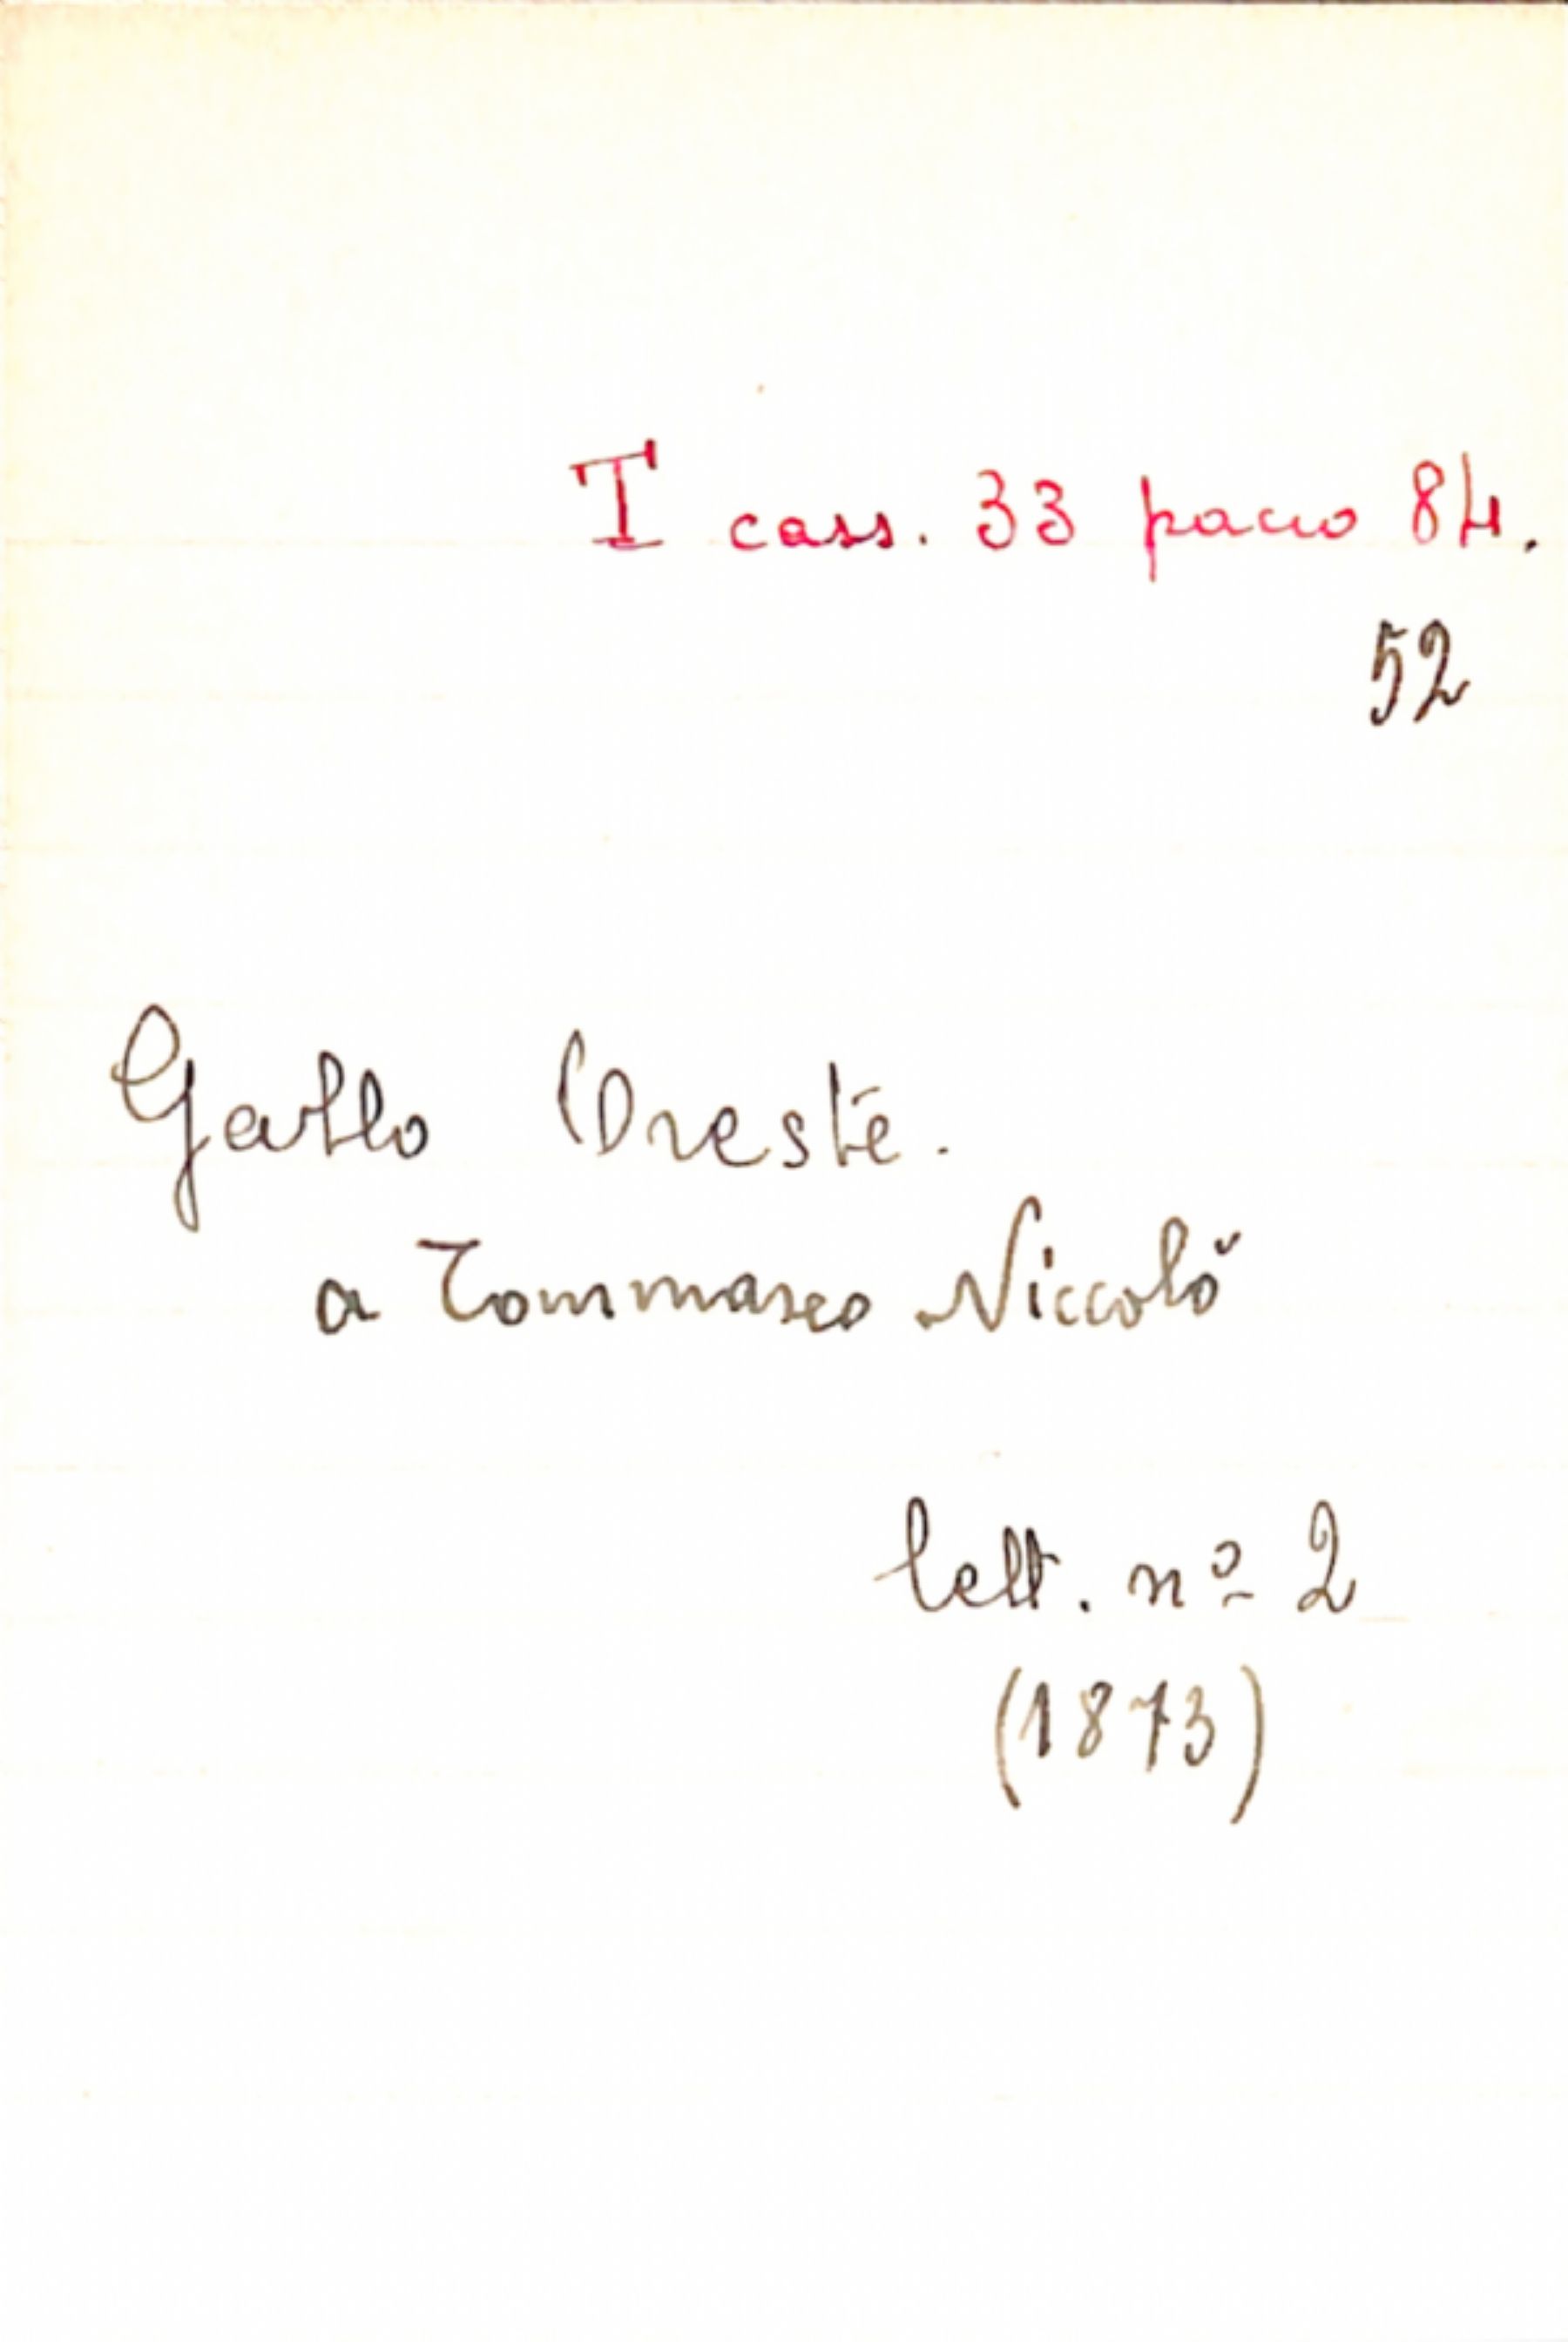 T cass. 33 pacco 84.
52
Gallo Oreste.
a Tommaseo Niccolò
lett. nº 2
(1873)